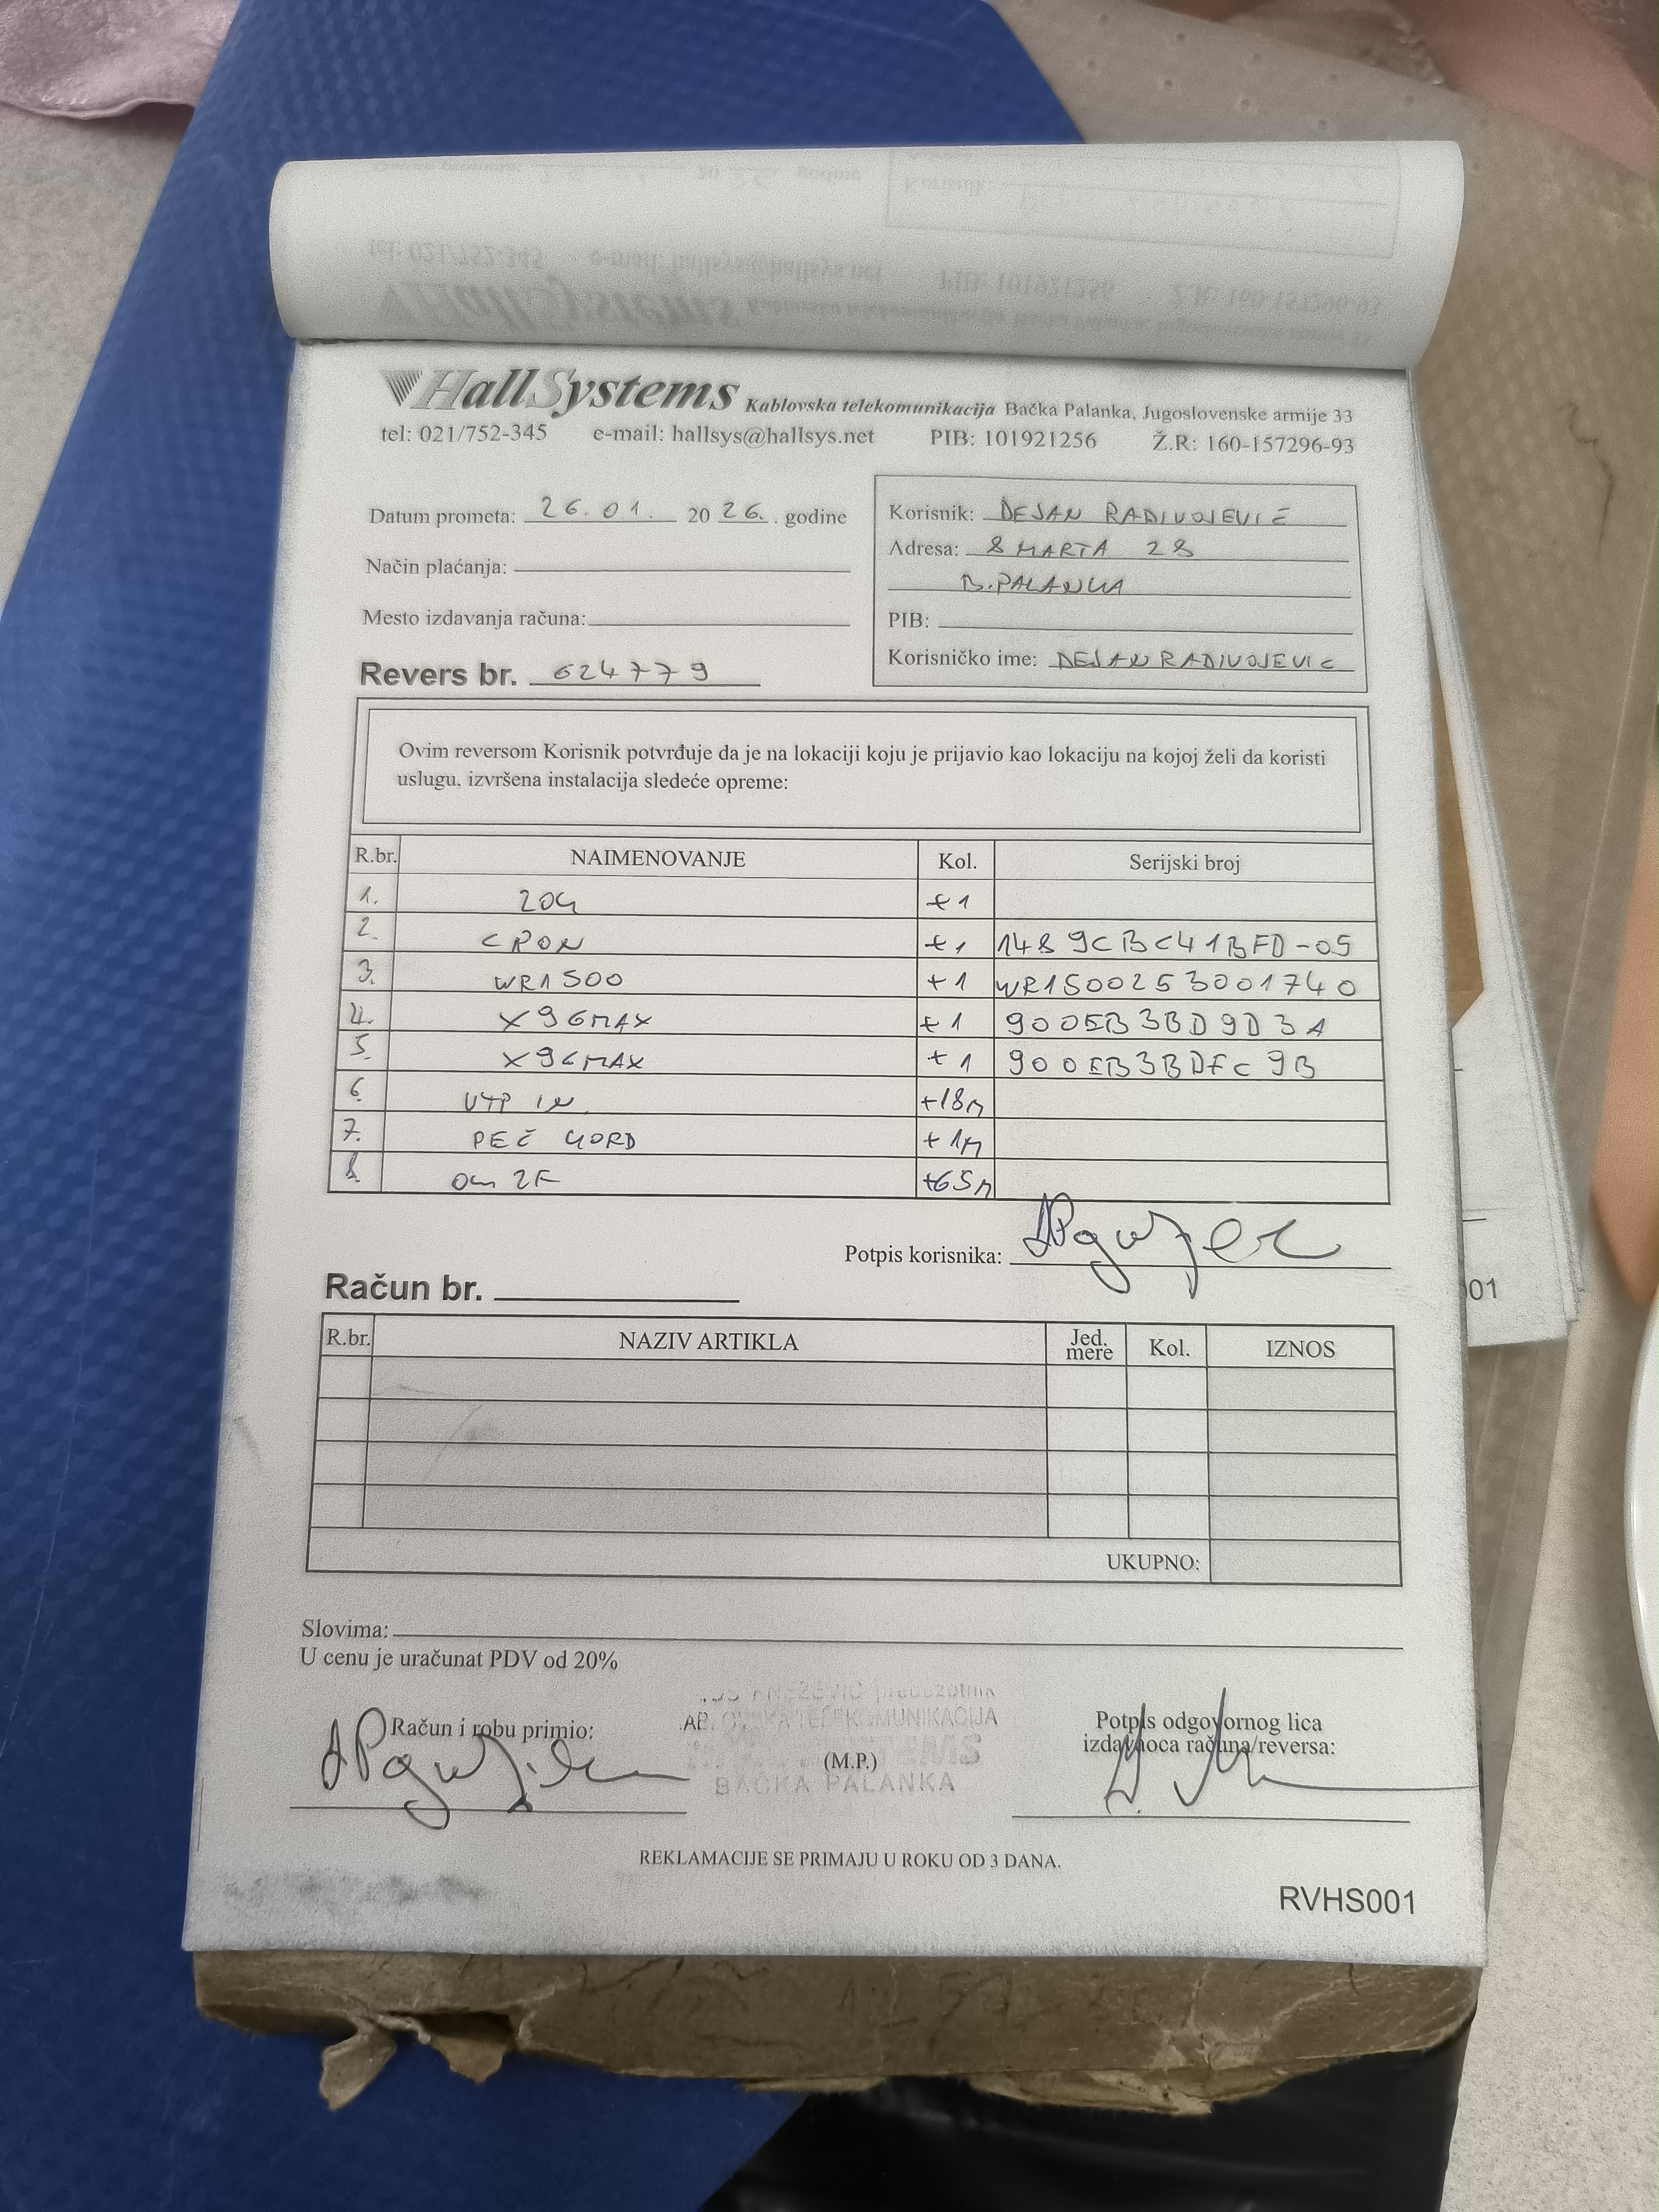 HallSystems Kablovska telekomunikacija Bačka Palanka, Jugoslovenske armije 33
tel: 021/752-345 e-mail: hallsys@hallsys.net PIB: 101921256 Ž.R: 160-157296-93
Datum prometa: 26.01. 2026. godine
Način plaćanja:
Mesto izdavanja računa:
Revers br. 624779
Korisnik: DEJAN RADIVOJEVIĆ
Adresa: 8 MARTA 28
B.PALANKA
PIB:
Korisničko ime: DEJANRADIVOJEVIC
Ovim reversom Korisnik potvrđuje da je na lokaciji koju je prijavio kao lokaciju na kojoj želi da koristi
uslugu, izvršena instalacija sledeće opreme:
R.br. NAIMENOVANJE Kol. Serijski broj
1. +1
2. CPON +1 1489CBC41BFD-05
3. WR1500 +1 WR1500253001740
4. X96MAX +1 900EB3BD9D3A
5. X96MAX +1 900EB3BDFC9B
6. UTP IN +18m
7. PEČ KORD +1m
8. 2F +65m
Potpis korisnika:
Račun br.
R.br. NAZIV ARTIKLA Jed. mere Kol. IZNOS
UKUPNO:
Slovima:
U cenu je uračunat PDV od 20%
Račun i robu primio:
KNEŽEVIĆ preduzetnik
KOMUNIKACIJA
(M.P.)
BAČKA PALANKA
Potpis odgovornog lica
izdavaoca računa/reversa:
REKLAMACIJE SE PRIMAJU U ROKU OD 3 DANA.
RVHS001